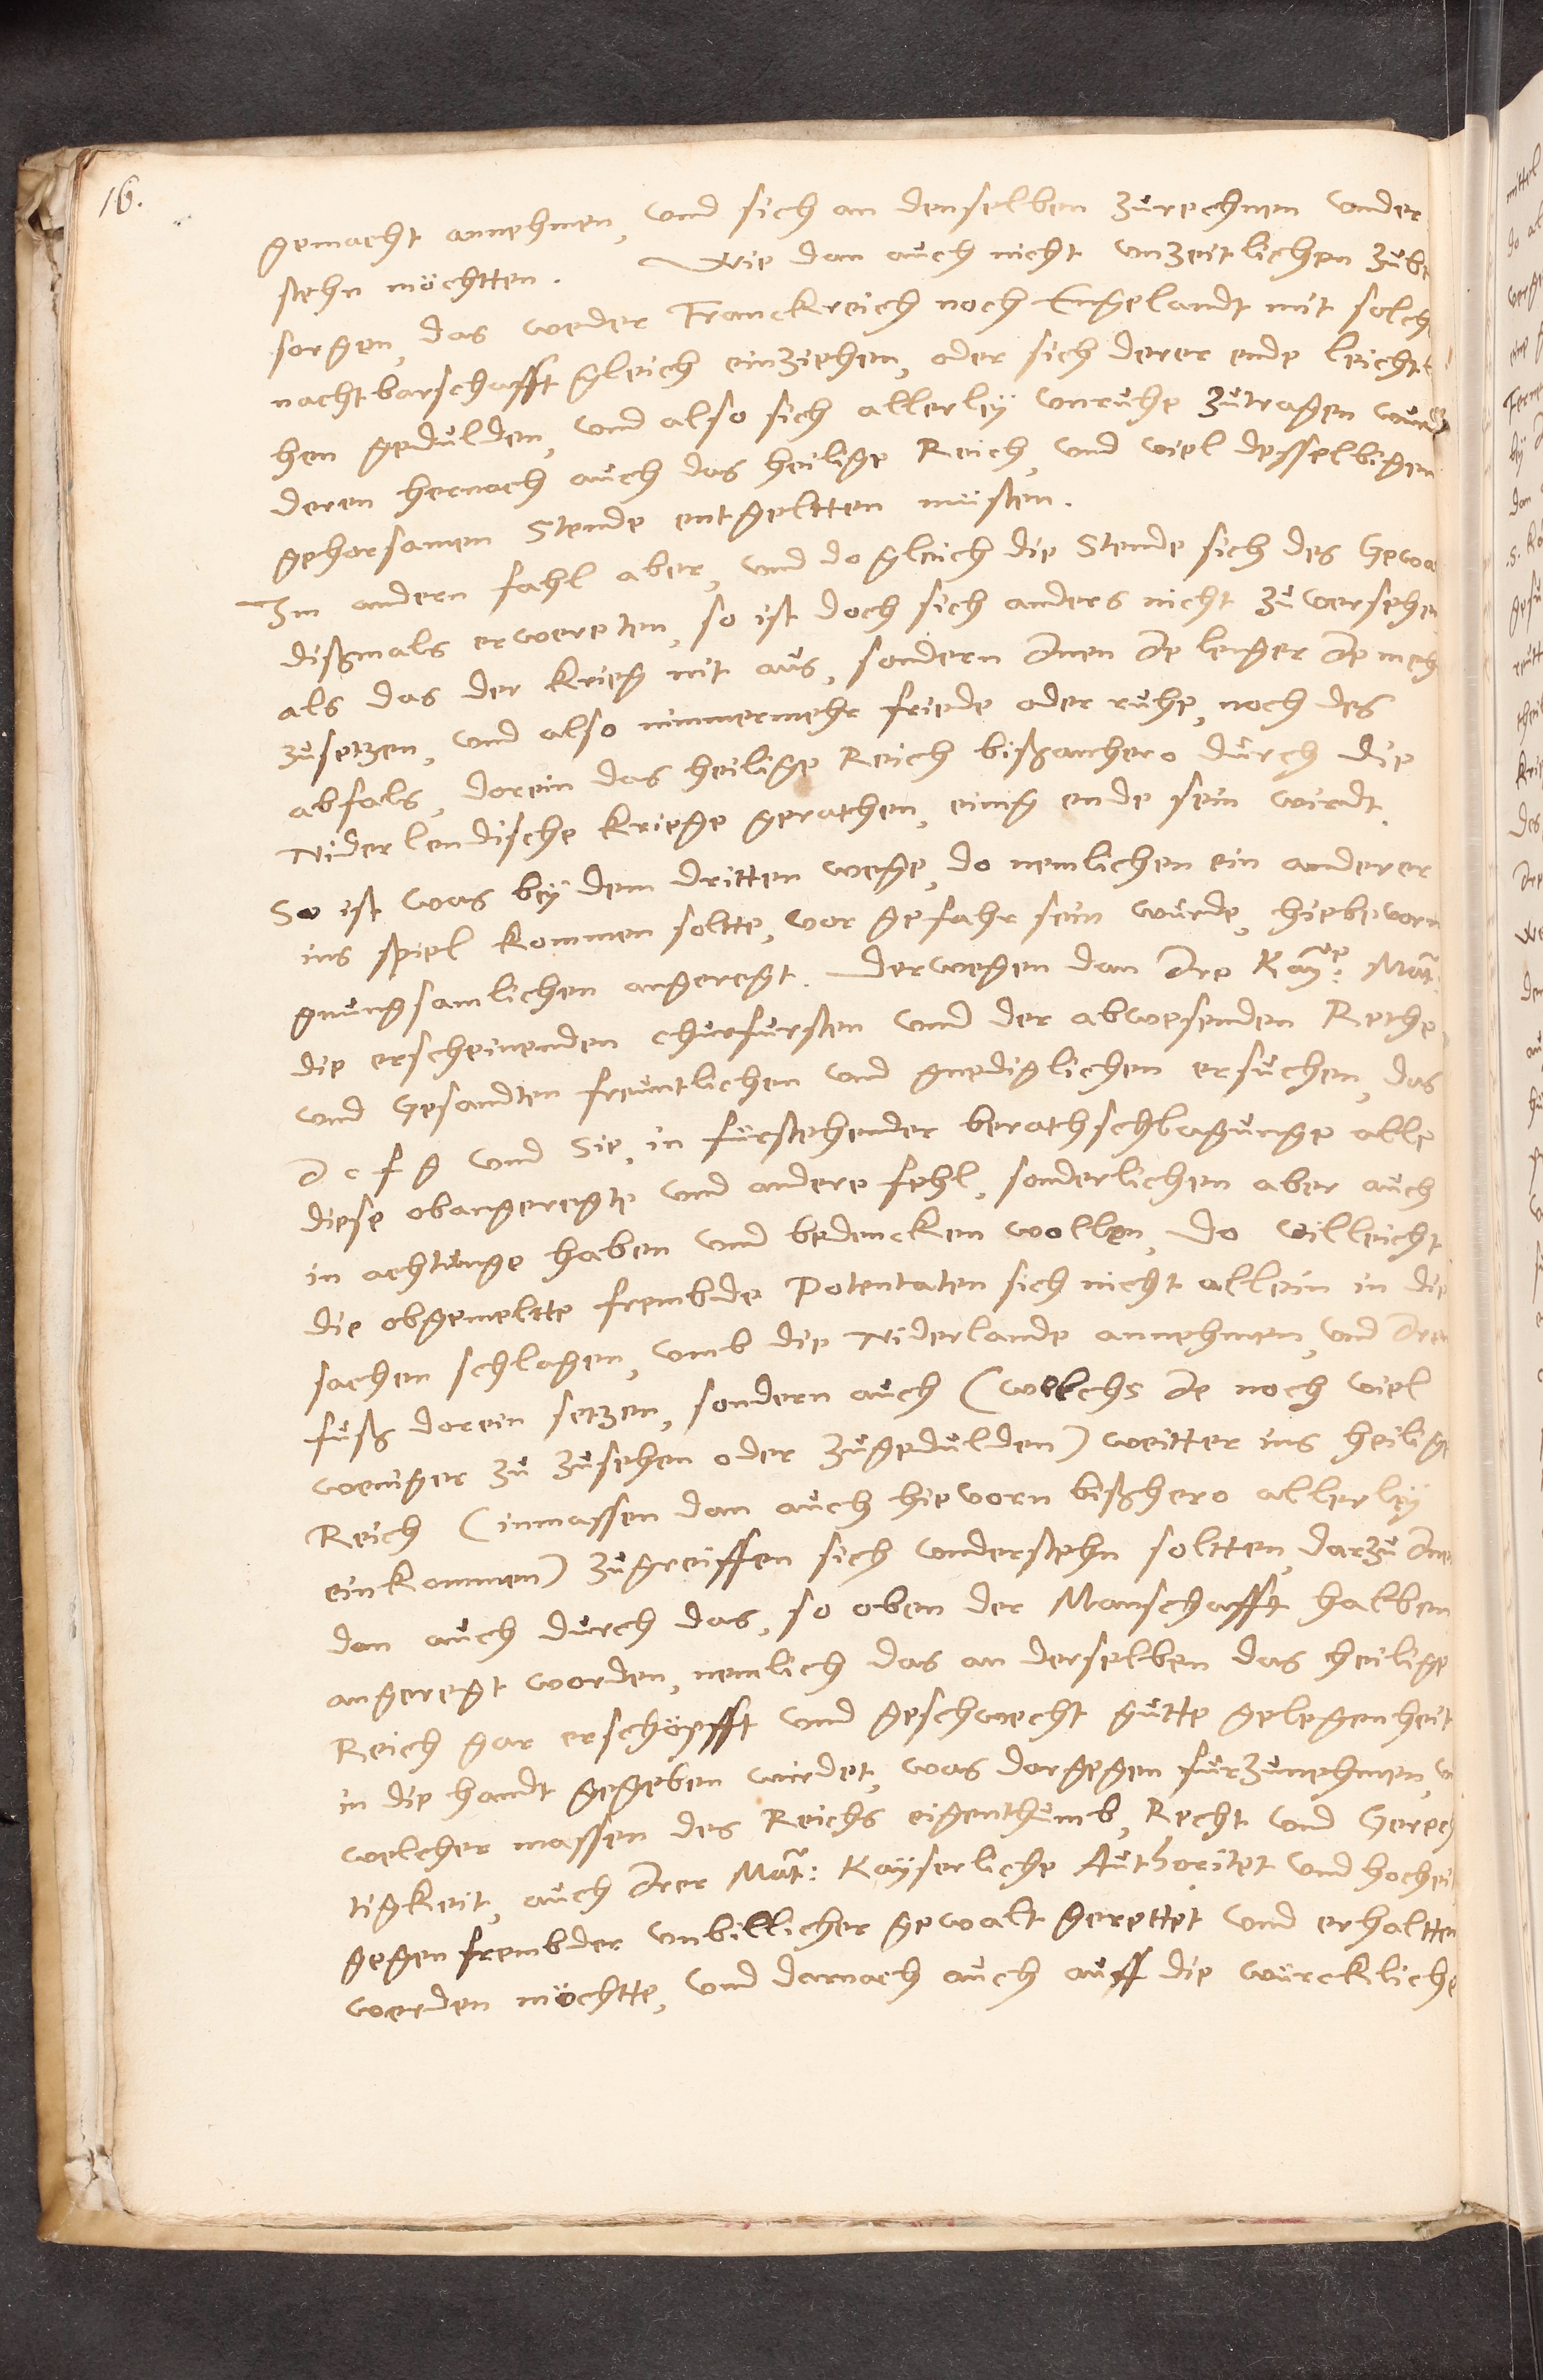 16.
gemacht annehmen, vnd sich an denselben zurechnen vnder
stehn möchtten. Wie dan auch nicht vnzeitlichen zube
sorgen, das weder Franckreich noch Engelandt mit solch
nachtbarschafft gleich einziehen, oder sich derer ende leicht
hen gedulden, vnd also sich allerleÿ vnruhe zutragen wurd
deren hernach auch das heilige Reich, vnd viel desselbigen
gehorsamen Stende entgeltten müsten.
Im andern fahl aber, vnd do gleich die Stende sich des Gewa
dißmals erwereten, so ist doch sich anders nicht zuversehen
als das der krieg nit aus, sondern Inen Je lenger Je meh
zusetzen, vnd also nimmermehr friede oder ruhe, noch des
abfals, darein das heilige Reich bißanhero durch die
Niderlendische kriege gerathen, einig ende sein wirdt.
So ist was beÿ dem dritten wege, do nemlichen ein anderer
ins spiel kommen soltte, vor gefahr sein wurde, hiebevorn
gnungsamlichen angeregt. Derwegen dan Ire Kaÿ:e Mat:
die erscheinenden churfursten vnd der abwesenden Rethe
vnd Gesandten freuntlichen vnd gnediglichen ersuchen, das
I c f g vnd Sie, in fürstehender berathschlagunge alle
diese obangeregte vnd andere fehl, sonderlichen aber auch
in achtunge haben vnd bedencken wollen, do villeicht
die obgemeltte frembde Potentaten sich nicht allein in die
sachen schlagen, vmb die Niderlande annehmen, vnd Iren
fuß darein setzen, sondern auch (welchs Je noch viel
weniger zu zusehen oder zugedulden) weitter ins heilige
Reich (inmassen dan auch hievorn bißhero allerleÿ
einkommen) zugreiffen sich vnderstehn soltten, darzu Inen
dan auch durch das, so oben der Manschafft halben
angeregt worden, nemlich das an derselben das heilige
Reich gar erschöpfft vnd geschwecht gutte gelegenheit
in die handt gegeben wirdet, was dargegen fürzunehmen, v
welcher massen des Reichs eigenthumb, Recht vnd Gerech
tigkeit, auch Irer Mat: Kaÿserliche Authoritet vnd hochei
gegen frembder vnbillicher gewalt gerettet vnd erhaltten
werden möchtte, vnd darnach auch auff die würckliche